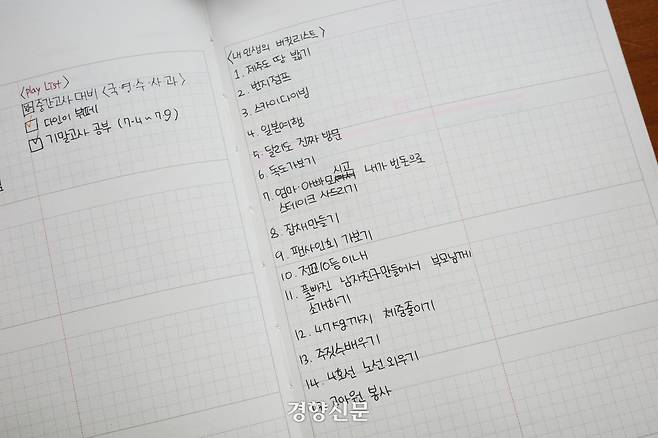 <play List>
중간고사 대비 <국·영·수·사·과>
다인이 뷔페
기말고사 공부 (7.4~7.9)
<내 인생의 버킷리스트>
1. 제주도 땅 밟기
2. 번지점프
3. 스카이다이빙
4. 일본여행
5. 달리도 진짜 방문
6. 독도가보기
7. 엄마·아빠 모시고 내가 번돈으로
스테이크 사드리기
8. 잡채만들기
9. 팬사인회 가보기
10. 전교10등이내
11. 잘빠진 남자친구만들어서 부모님께
소개하기
12. 47kg까지 체중줄이기
13. 주짓수배우기
14. 4호선 노선 외우기
고아원 봉사
경향신문